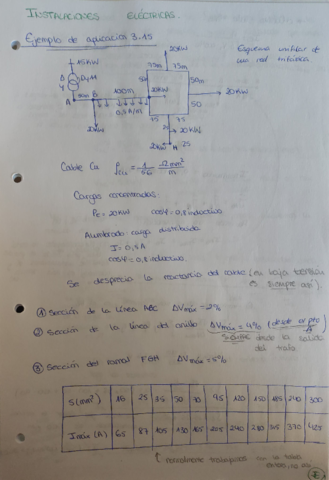 INSTALACIONES ELÉCTRICAS.
Ejemplo de aplicación 3.15
Esquema unifilar de
una red trifásica
15KW
20KW
75m 75m
50
50m
Δ
Y
A
50m
B
100m
20KW
20KW
0,5A/m
50
20KW
75 75
25
20KW
H 25
Cable Cu ρcu = 1/56 Ωmm²/m
Cargas concentradas:
Pc = 20KW cosφ = 0,8 inductivo
Alumbrado: carga distribuida
I = 0,5A
cosφ = 0,8 inductivo.
Se desprecia la reactancia del cable (en baja tensión
es siempre así).
① Sección de la línea ABC ΔVmáx = 2%
② Sección de la línea del anillo ΔVmáx = 4% (desde el pto
A)
desde la salida
del trafo.
③ Sección del ramal FGH ΔVmáx = 5%
S(mm²) 16 25 35 50 70 95 120 150 185 240 300
Imáx (A) 65 87 105 130 165 205 240 280 315 370 425
normalmente trabajamos con la tabla